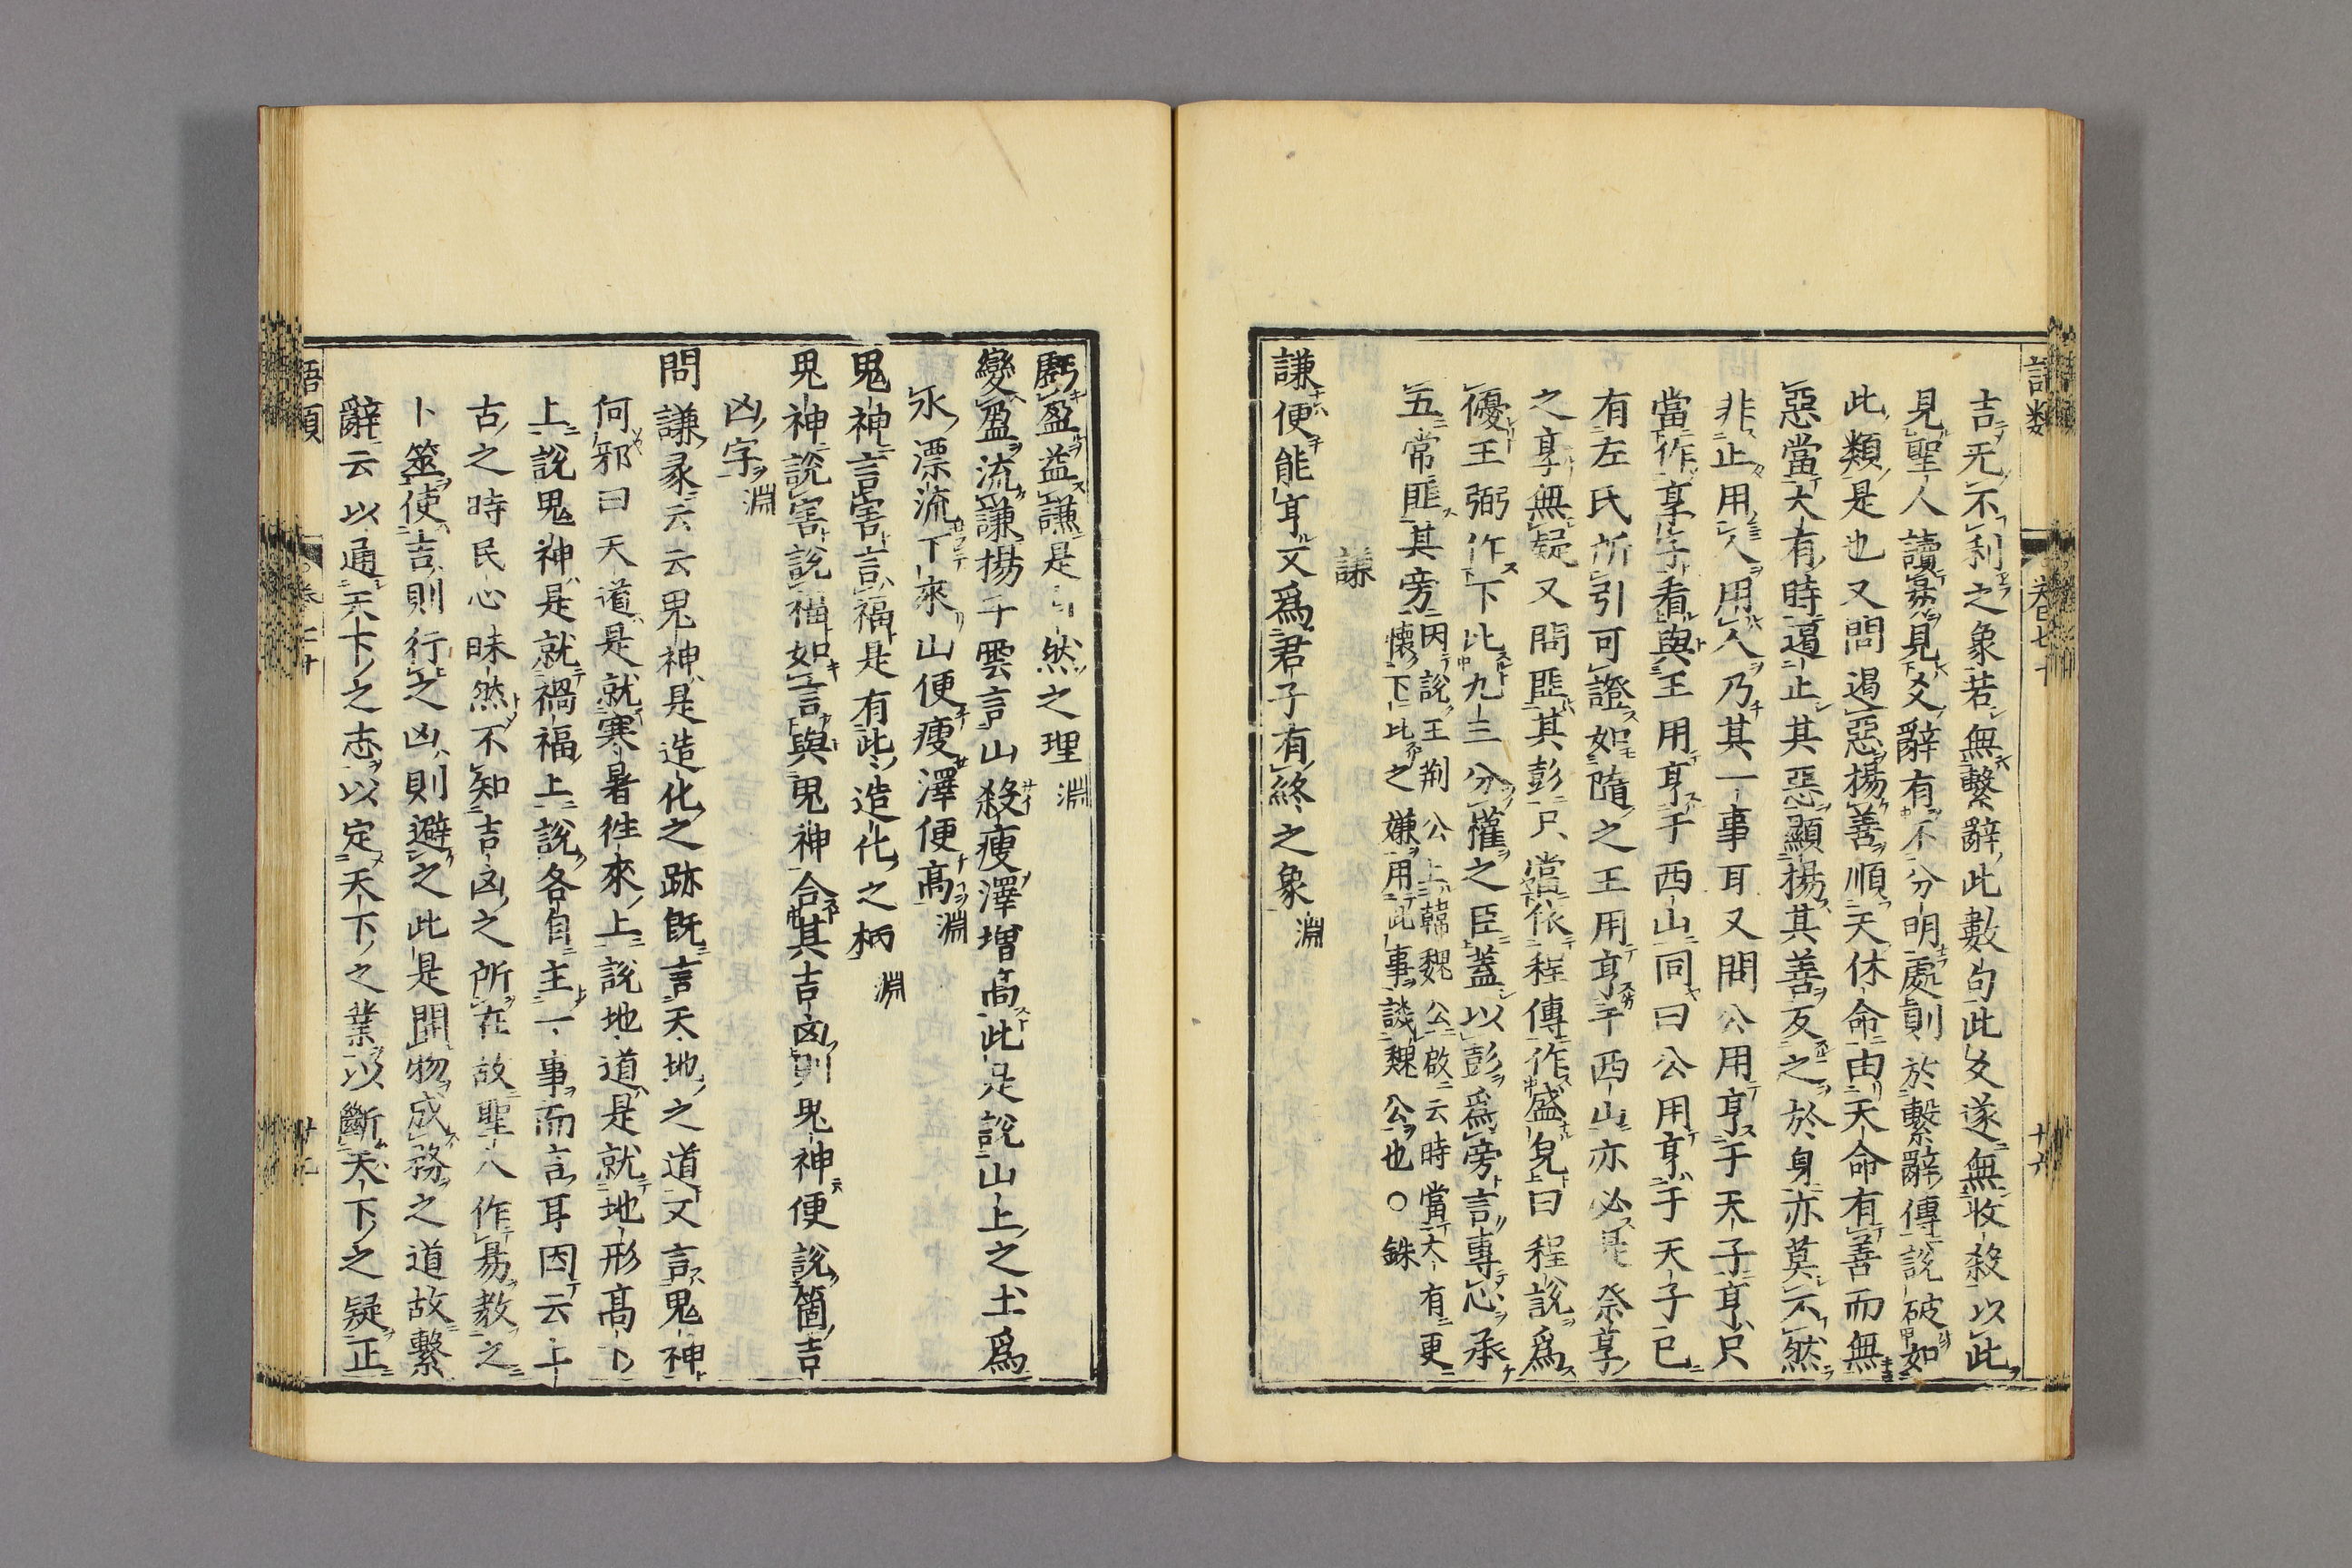 吉无不利之象若無繫辭此數句此爻遂無收殺以此
見聖人讀易見爻辭有不分明處則於繫辭傳說破如
此類是也又問遏惡揚善順天休命由天命有善而無
惡當大有時遏止其惡顯揚其善反之於身亦莫不然
非止用人用人乃其一事耳又問公用亨于天子亨只
當作享字看與王用亨于西山同曰公用亨于天子已
有左氏所引可證如隨之王用亨于西山亦必是祭享
之享無疑又問匪其彭只當依程傳作盛皃曰程說爲
優王弼作下比九三分權之臣蓋以彭爲旁言專心承
五常匪其旁因說王荆公上韓魏公啟云時當大有更
懷下比之嫌用此事譏魏公也○銖
謙
謙便能亨又爲君子有終之象淵
虧盈益謙是自然之理淵
變盈流謙揚子雲言山殺瘦澤增高此是說山上之土爲
水漂流下來山便瘦澤便高淵
鬼神言害言福是有此造化之柄淵
鬼神說害說福如言與鬼神合其吉凶則鬼神便說箇吉
凶字淵
問謙彖云云鬼神是造化之跡旣言天地之道又言鬼神
何邪曰天道是就寒暑徃來上說地道是就地形高下
上說鬼神是就禍福上說各自主一事而言耳因云上
古之時民心昧然不知吉凶之所在故聖人作易教之
卜筮使吉則行之凶則避之此是開物成務之道故繫
辭云以通天下之志以定天下之業以斷天下之疑正